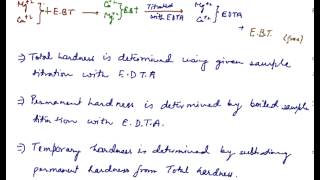 Mg2+ Ca2+ } + E.BT → Ca2+ Mg2+ } EBT Titrated with EDTA → Mg2+ Ca2+ } EDTA
+
E.B.T. (free)
⇒ Total hardness is determined using given sample
titration with E.D.T.A
⇒ Permanent hardness is determined by boiled sample
titration with E.D.T.A.
⇒ Temporary hardness is determined by subtrating
permanent hardness from Total hardness.